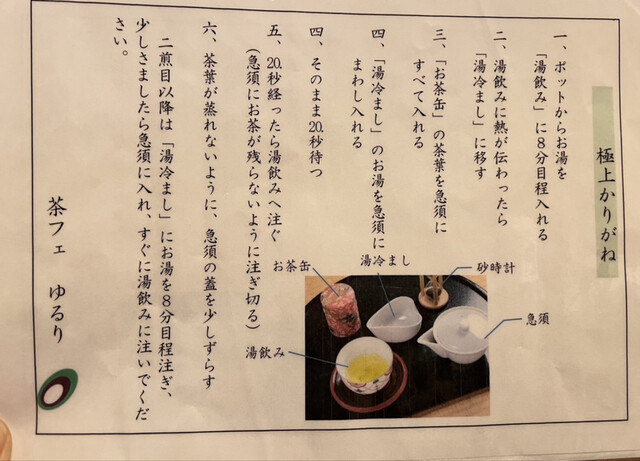 極上かりがね
一、ポットからお湯を
「湯飲み」に８分目程入れる
二、湯飲みに熱が伝わったら
「湯冷まし」に移す
三、「お茶缶」の茶葉を急須に
すべて入れる
四、「湯冷まし」のお湯を急須に
まわし入れる
四、そのまま20秒待つ
五、20秒経ったら湯飲みへ注ぐ
(急須にお茶が残らないように注ぎ切る)
六、茶葉が蒸れないように、急須の蓋を少しずらす
二煎目以降は「湯冷まし」にお湯を８分目程注ぎ、
少しさましたら急須に入れ、すぐに湯飲みに注いでくだ
さい。
お茶缶
湯冷まし
砂時計
急須
湯飲み
茶フェ ゆるり